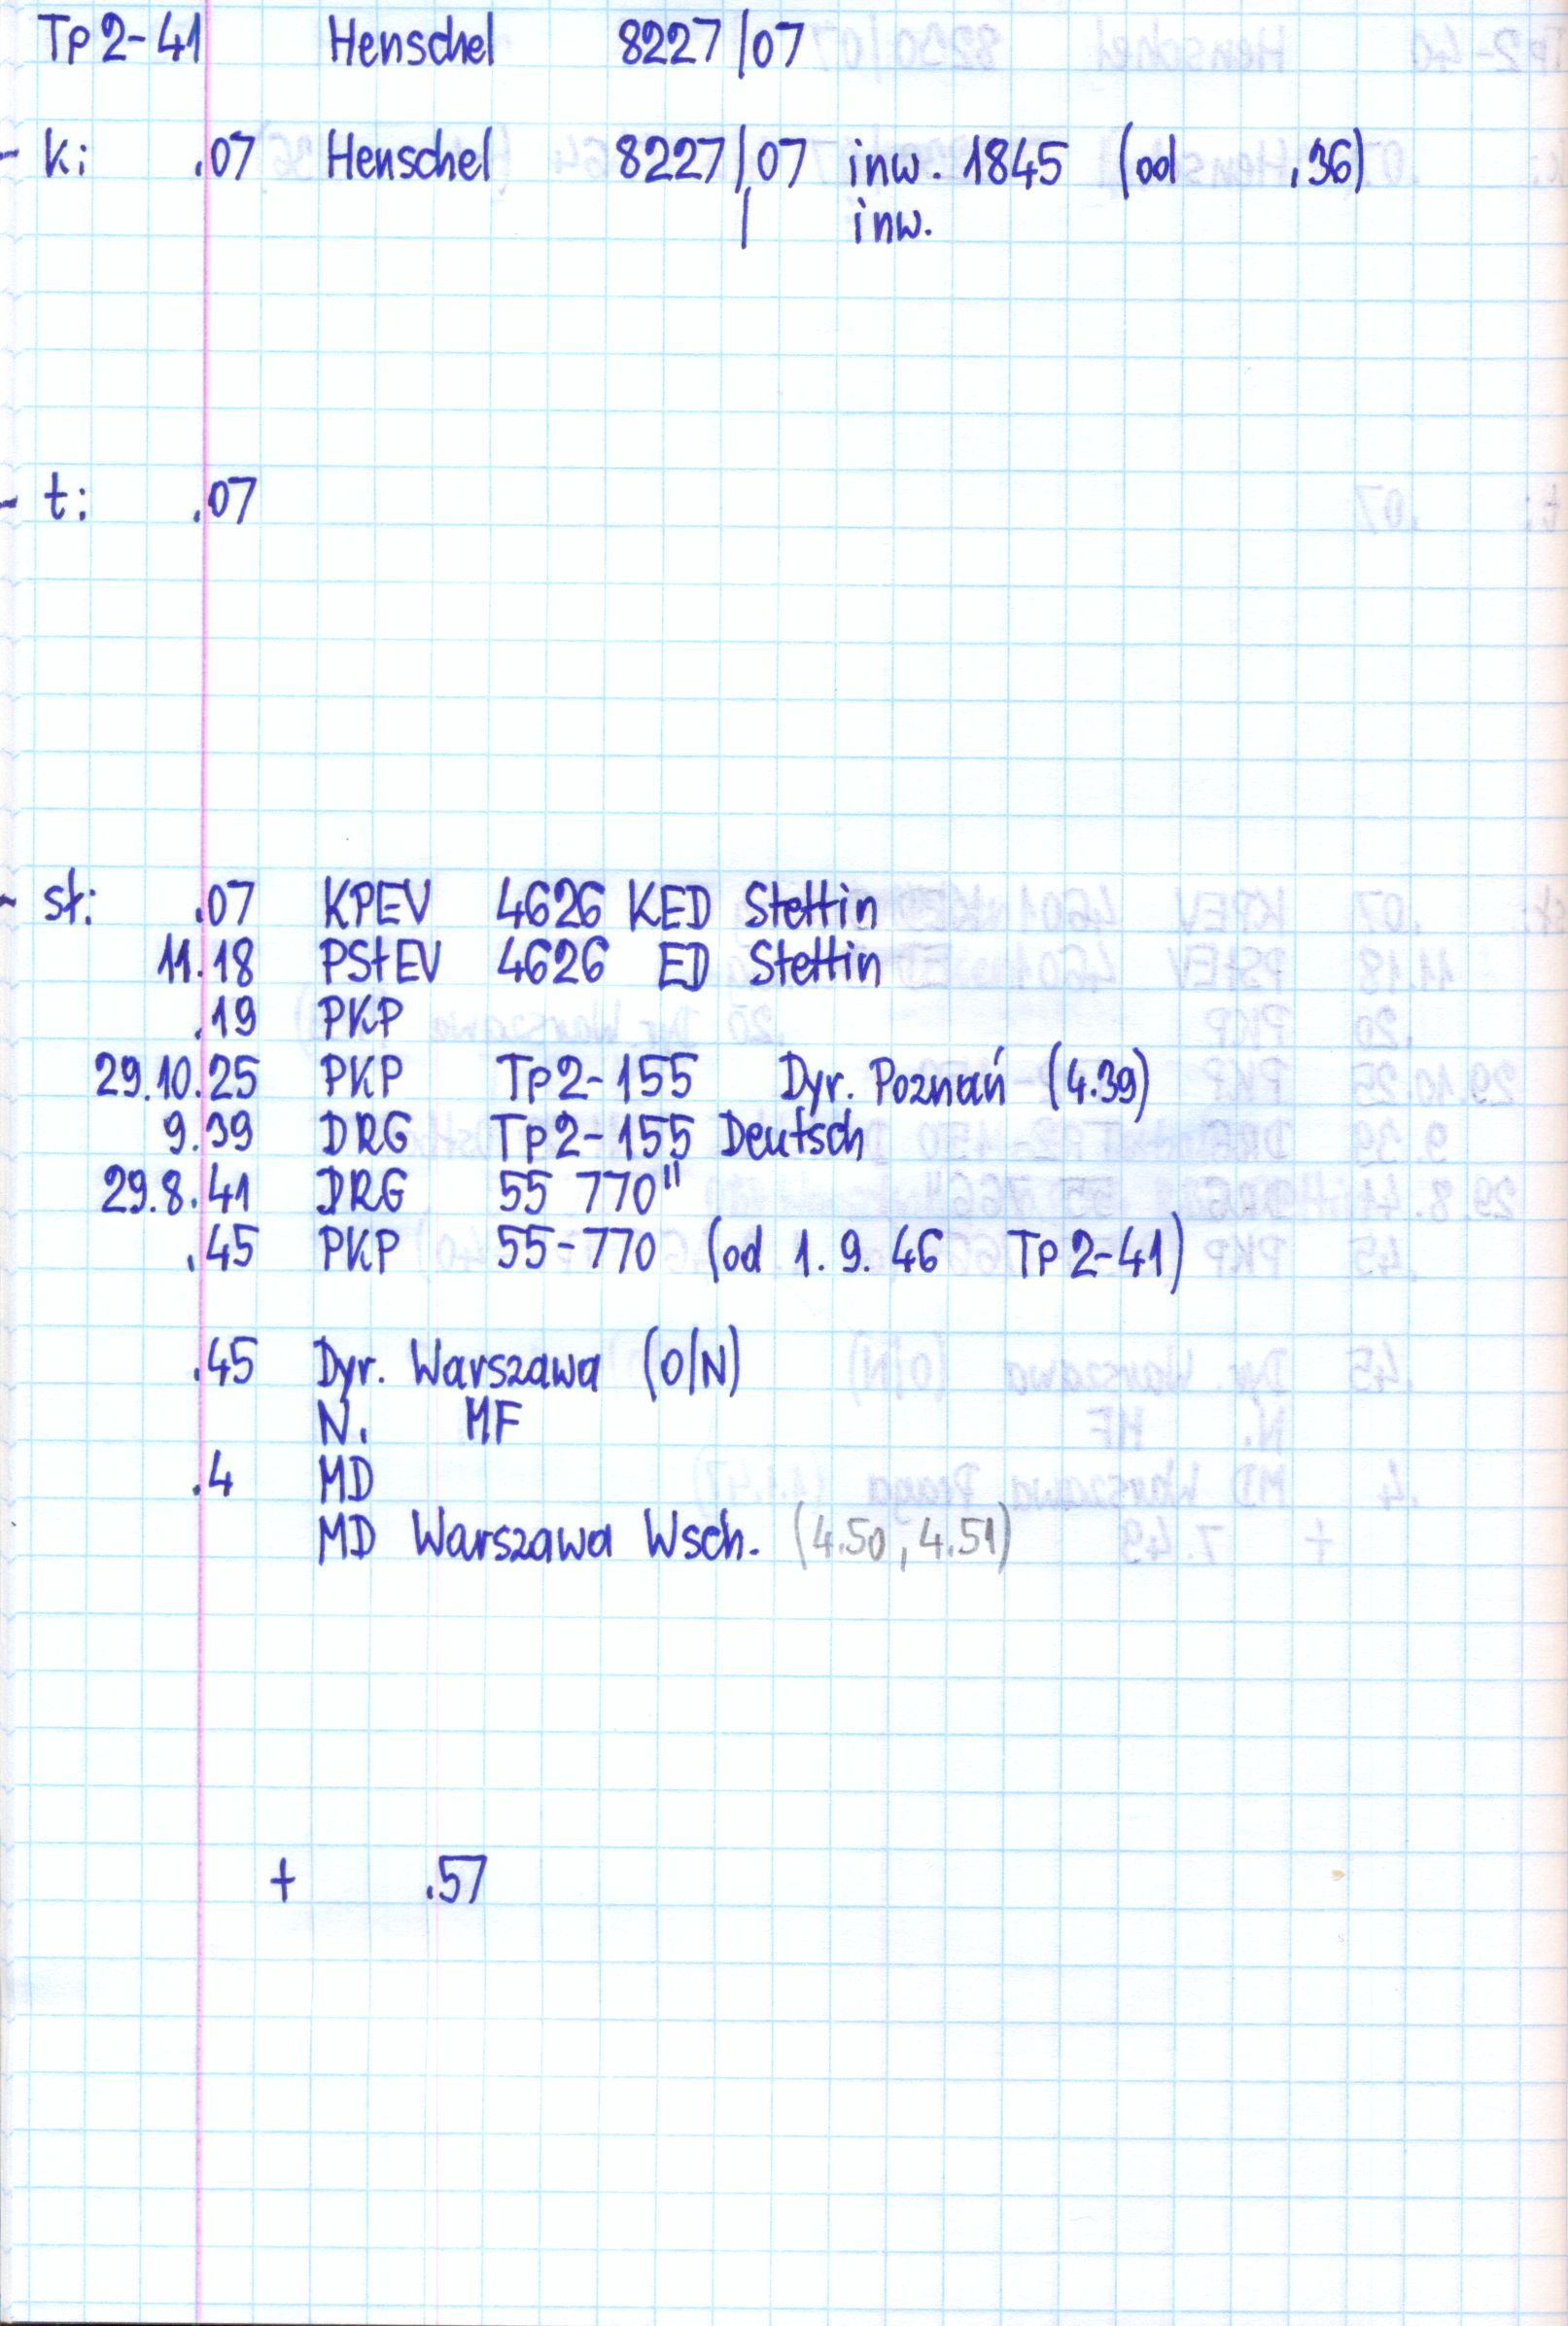 Tp2-41 Henschel 8227/07
- k: .07 Henschel 8227/07 inw. 1845 (od .36)
/ inw.
- t: .07
- sł: .07 KPEV 4626 KED Stettin
11.18 PStEV 4626 ED Stettin
.19 PKP
29.10.25 PKP Tp2-155 Dyr. Poznań (4.39)
9.39 DRG Tp2-155 Deutsch
29.8.41 DRG 55 770"
.45 PKP 55-770 (od 1.9.46 Tp2-41)
.45 Dyr. Warszawa (O/N)
N. MF
.4 MD
MD Warszawa Wsch. (4.50, 4.51)
+ .57